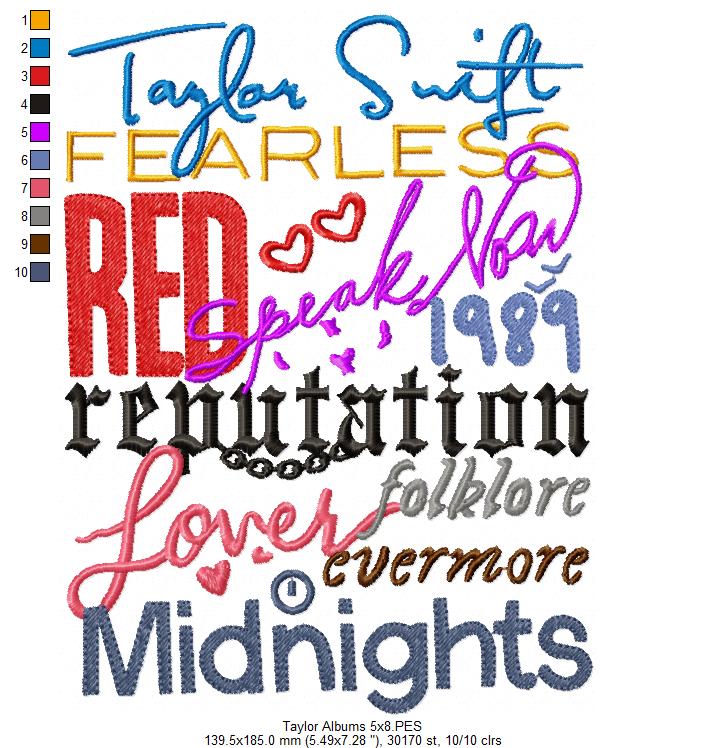 1
2
3
4
5
6
7
8
9
10
Taylor Swift
FEARLESS
RED
Speak Now
1989
reputation
folklore
Lover
evermore
Midnights
Taylor Albums 5x8.PES
139.5x185.0 mm (5.49x7.28 "), 30170 st, 10/10 clrs